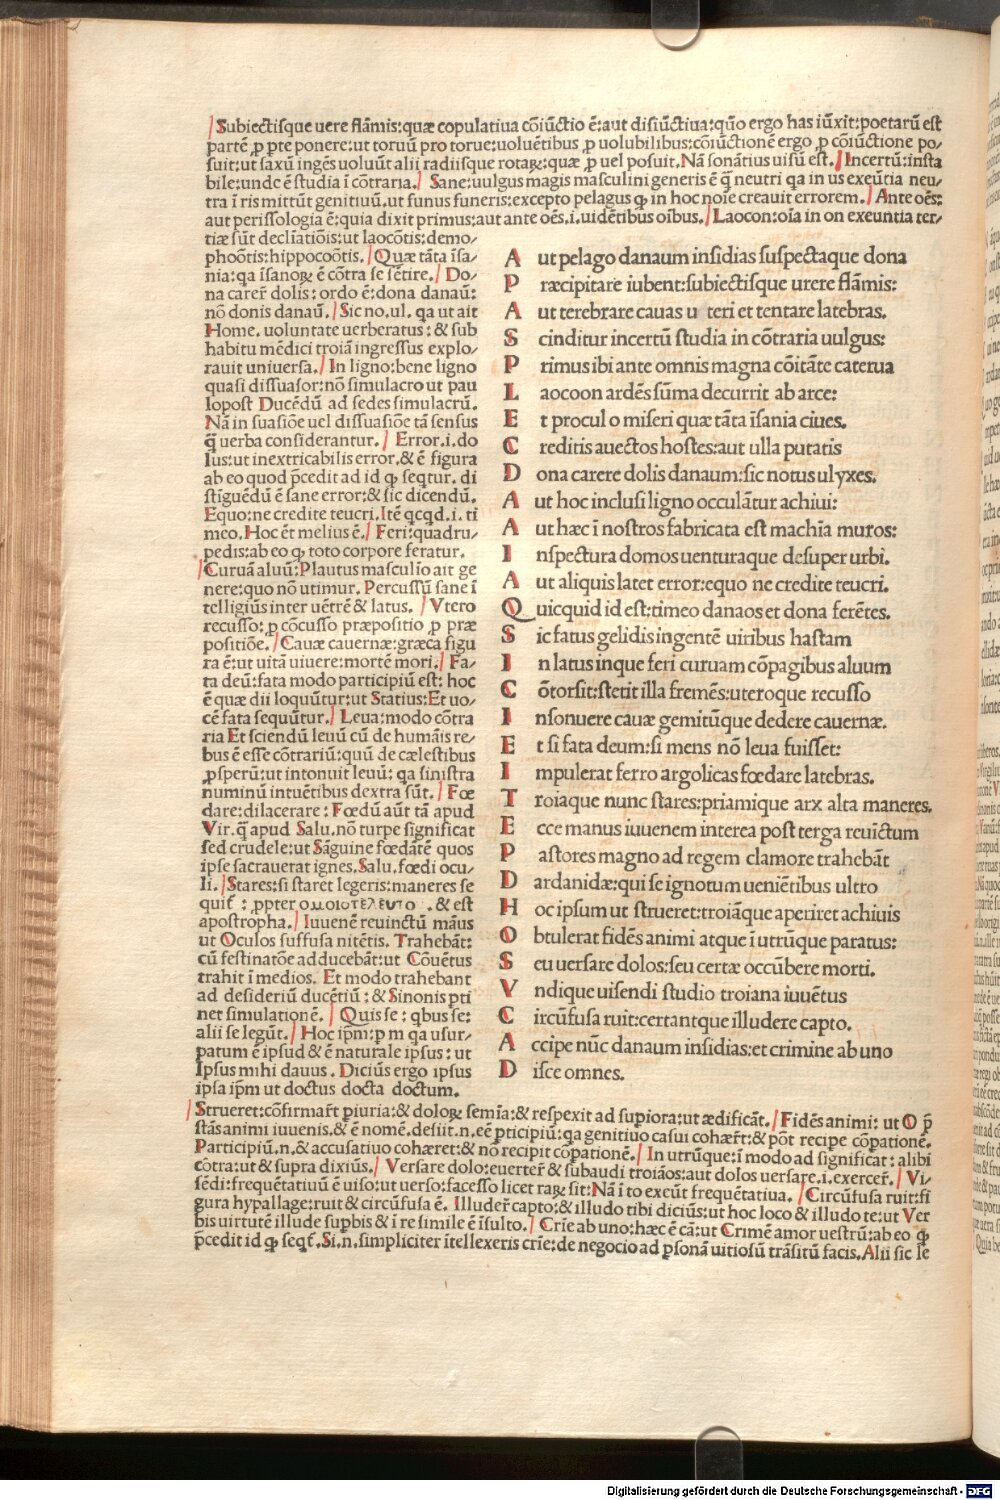 Subiectisque uere flāmis:quæ copulatiua cōiūctio ē:aut disiūctiua:quo ergo has iūxit:poetarū est
partē ꝓ pte ponere:ut toruū pro torue:uoluētibus ꝓ uolubilibus:cōiūctionē ergo ꝓ cōiūctione po⸗
suit:ut saxū ingēs uoluūt alii radiisque rotaꝝ:quæ ꝓ uel posuit.Nā sonātius uisū est. Incertū:insta
bile:unde ē studia ī cōtraria. Sane:uulgus magis masculini generis ē q̄ neutri qa in us exeūtia neu⸗
tra ī ris mittūt genitiuū.ut funus funeris:excepto pelagus ꝙ in hoc noīe creauit errorem. Ante oēs:
aut perissologia ē:quia dixit primus:aut ante oēs.i.uidētibus oībus. Laocon:oīa in on exeuntia ter⸗
tiæ sūt decliatiōis:ut laocōtis:demo⸗
phoōtis:hippocoōtis. Quæ tāta īsa⸗
nia:qa īsanoꝝ ē cōtra se sētire. Do⸗
na carer̄ dolis: ordo ē:dona danaū:
nō donis danaū. Sic no.ul. qa ut ait
Home. uoluntate uerberatus: & sub
habitu mēdici troiā ingressus explo⸗
rauit uniuersa. In ligno:bene ligno
quasi dissuasor:nō simulacro ut pau
lopost Ducēdū ad sedes simulacrū.
Nā in suasiōe uel dissuasiōe tā sensus
q̄ uerba considerantur. Error.i.do
lus:ut inextricabilis error.& ē figura
ab eo quod p̄cedit ad id ꝙ seqtur. di
stīguēdū ē sane error:& sic dicendū.
Equo:ne credite teucri.Itē qcqd.i.ti
meo.Hoc ēt melius ē. Feri:quadru⸗
pedis:ab eo ꝙ toto corpore feratur.
Curuā aluū:Plautus masculīo ait ge
nere:quo nō utimur. Percussū sane ī
telligiūs inter uētrē & latus. Vtero
recusso: ꝓ cōcusso præpositio ꝓ præ
positiōe. Cauæ cauernæ:græca figu
ra ē:ut uitā uiuere:mortē mori. Fa⸗
ta deū:fata modo participiū est: hoc
ē quæ dii loquūtur:ut Statius:Et uo⸗
cē fata sequūtur. Leua:modo cōtra
ria Et sciendū leuū cū de humāis re⸗
bus ē esse cōtrariū:quū de cælestibus
ꝓsperū:ut intonuit leuū: qa sinistra
numinū intuētibus dextra sūt. Fœ
dare:dilacerare: Fœdū aūt tā apud
Vir.q̄ apud Salu.nō turpe significat
sed crudele:ut Sāguine fœdātē quos
ipse sacrauerat ignes.Salu.fœdi ocu⸗
li. Stares:si staret legeris:maneres se
quit̄: ꝓpter ομοιοτελευτο .& est
apostropha. Iuuenē reuinctū māus
ut Oculos suffusa nitētis. Trahebāt:
cū festinatōe adducebāt:ut Cōuētus
trahit ī medios. Et modo trahebant
ad desideriū ducētiū: & Sinonis pti
net simulationē. Quis se: qbus se:
alii se legūt. Hoc ip̄m: p m qa usur⸗
patum ē ipsud & ē naturale ipsus: ut
Ipsus mihi dauus. Dicius ergo ipsus
ipsa ip̄m ut doctus docta doctum.
A ut pelago danaum insidias suspectaque dona
P ræcipitare iubent:subiectisque urere flāmis:
A ut terebrare cauas u teri et tentare latebras.
S cinditur incertū studia in cōtraria uulgus:
P rimus ibi ante omnis magna cōitāte caterua
L aocoon ardēs sūma decurrit ab arce:
E t procul o miseri quæ tāta īsania ciues.
C reditis auectos hostes:aut ulla putatis
D ona carere dolis danaum:sic notus ulyxes.
A ut hoc inclusi ligno occulātur achiui:
A ut hæc ī nostros fabricata est machīa muros:
I nspectura domos uenturaque desuper urbi.
A ut aliquis latet error:equo ne credite teucri.
Q uicquid id est:timeo danaos et dona ferētes.
S ic fatus gelidis ingentē uiribus hastam
I n latus inque feri curuam cōpagibus aluum
C ōtorsit:stetit illa fremēs:uteroque recusso
I nsonuere cauæ gemitūque dedere cauernæ.
E t si fata deum:si mens nō leua fuisset:
I mpulerat ferro argolicas fœdare latebras.
T roiaque nunc stares:priamique arx alta maneres.
E cce manus iuuenem interea post terga reuīctum
P astores magno ad regem clamore trahebāt
D ardanidæ:qui se ignotum ueniētibus ultro
H oc ipsum ut strueret:troiāque aperiret achiuis
O btulerat fidēs animi atque ī utrūque paratus:
S eu uersare dolos:seu certæ occūbere morti.
V ndique uisendi studio troiana iuuētus
C ircūfusa ruit:certantque illudere capto.
A ccipe nūc danaum insidias:et crimine ab uno
D isce omnes.
Strueret:cōfirmar̄t piuria:& doloꝝ semīa:& respexit ad supiora:ut ædificāt. Fidēs animi: ut O p̄
stās animi iuuenis.& ē nomē.desiit.n.eē pticipiū:qa genitiuo casui cohær̄t:& pōt recipe cōpationē.
Participiū.n.& accusatiuo cohæret:& nō recipit cōpationē. In utrūque:ī modo ad significat: alibi
cōtra:ut & supra dixiūs. Versare dolo:euerter̄ & subaudi troiāos:aut dolos uersare.i.exercer̄. Vi⸗
sēdi:frequētatiuū ē uiso:ut uerso:facesso licet raꝝ sit:Nā ī to exeūt frequētatiua. Circūfusa ruit:fi
gura hypallage:ruit & circūfusa ē. Illuder̄ capto:& illudo tibi dicius:ut hoc loco & illudo te:ut Ver
bis uirtutē illude supbis & ī re simile ē īsulto. Crīe ab uno:hæc ē cā:ut Crimē amor uestrū:ab eo ꝙ
p̄cedit id ꝙ seqt̄.Si.n.simpliciter ītellexeris crīe:de negocio ad ꝓsonā uitiosū trāsitū facis.Alii sic le
Digitalisierung gefördert durch die Deutsche Forschungsgemeinschaft - DFG